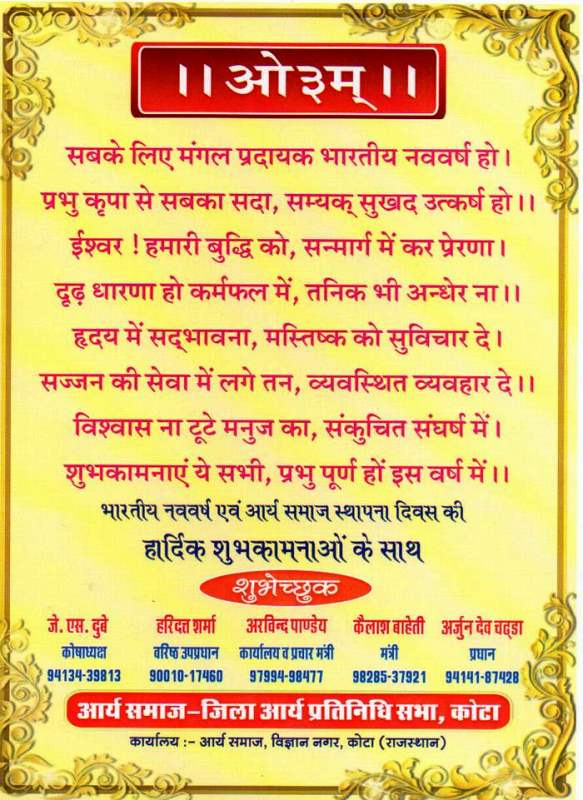 ।। ओ३म् ।।
सबके लिए मंगल प्रदायक भारतीय नववर्ष हो।
प्रभु कृपा से सबका सदा, सम्यक् सुखद उत्कर्ष हो।।
ईश्वर ! हमारी बुद्धि को, सन्मार्ग में कर प्रेरणा।
दृढ़ धारणा हो कर्मफल में, तनिक भी अन्धेर ना।।
हृदय में सद्भावना, मस्तिष्क को सुविचार दे।
सज्जन की सेवा में लगे तन, व्यवस्थित व्यवहार दे।।
विश्वास ना टूटे मनुज का, संकुचित संघर्ष में।
शुभकामनाएं ये सभी, प्रभु पूर्ण हों इस वर्ष में।।
भारतीय नववर्ष एवं आर्य समाज स्थापना दिवस की
हार्दिक शुभकामनाओं के साथ
शुभेच्छुक
जे. एस. दुबे हरिदत्त शर्मा अरविन्द पाण्डेय कैलाश बाहेती अर्जुन देव चड्डा
कोषाध्यक्ष वरिष्ठ उपप्रधान कार्यालय व प्रचार मंत्री मंत्री प्रधान
94134-39813 90010-17460 97994-98477 98285-37921 94141-87428
आर्य समाज–जिला आर्य प्रतिनिधि सभा, कोटा
कार्यालय :- आर्य समाज, विज्ञान नगर, कोटा (राजस्थान)